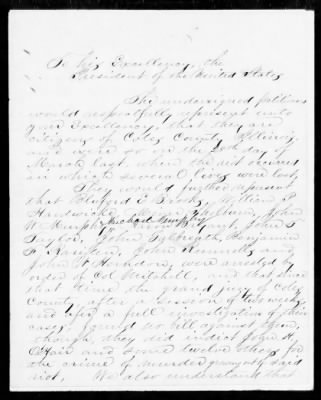 To his Excellency, the
President of the United States
The undersigned petitioners
would respectfully represent unto
your Excellency, that they are
citizens of Coles County, Illinois,
and were so on the 28th day of
March last, when the riot occured
in which several lives were lost,
They would further represent
that Bluford E. Brooks, William P.
Hardwicke, John
W. Murphy, Michael Murphy, Bryant, John T.
Taylor, John Galbreath, Benjamin
F. John Reynolds and
John W. Herndon, were arrested by
order of Col Mitchell, and that since
that time the grand jury of Coles
County, after a session of two weeks,
and after a full investigation of their
cases, found no bill against them,
though they did indict John H.
O'Hair and some twelve others for
the crime of murder growing out of said
riot, We also understand that